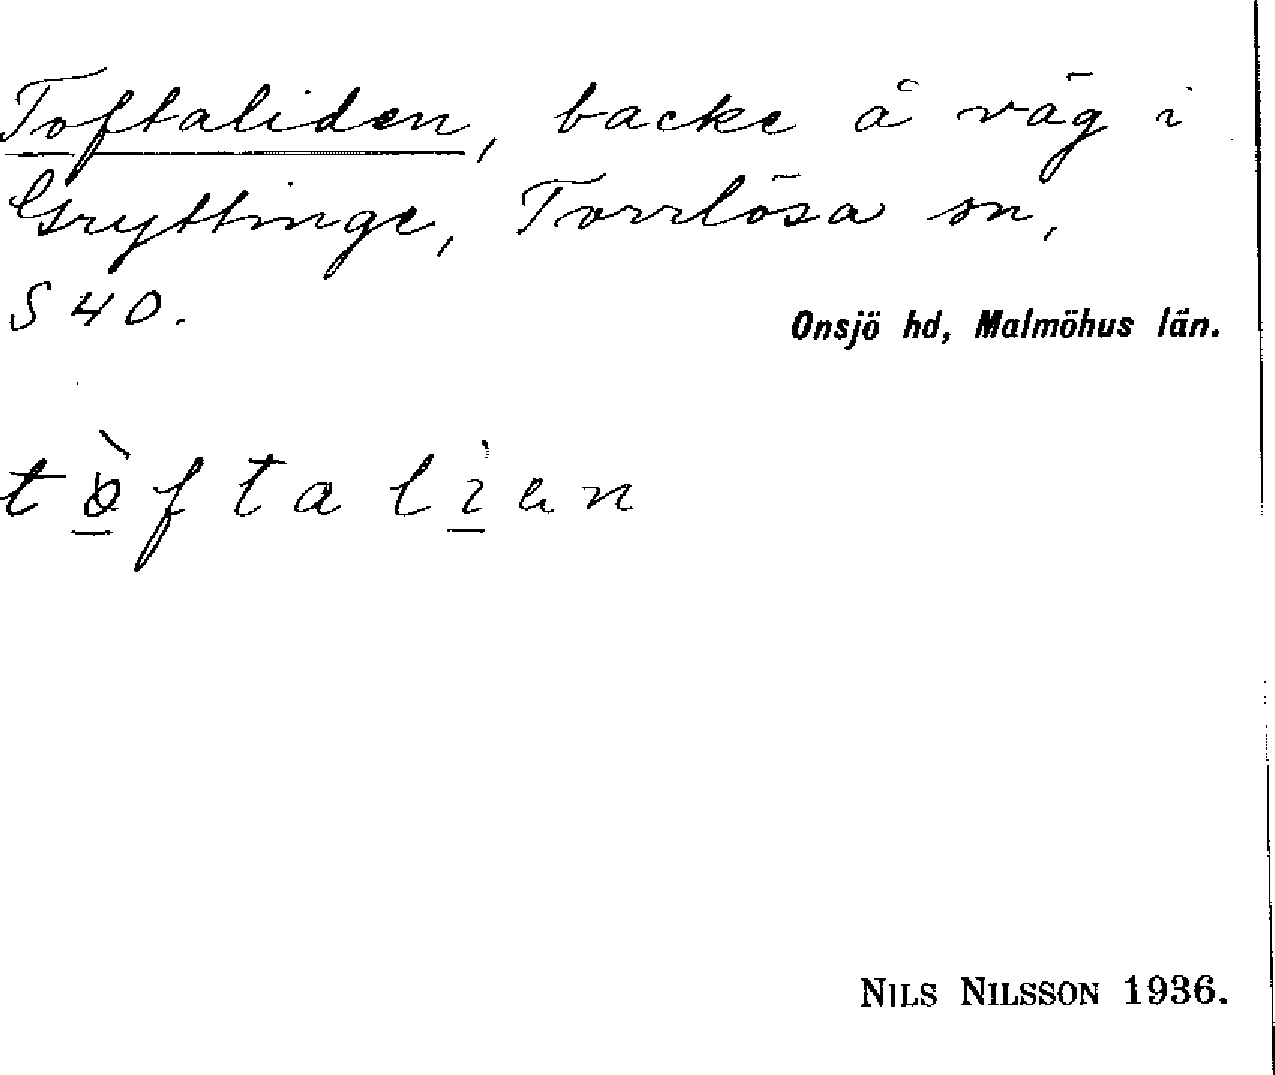 Toftaliden, backe å väg i
Gryttinge, Torrlösa sn,
S 40.
Onsjö hd, Malmöhus län.
NILS NILSSON 1936.